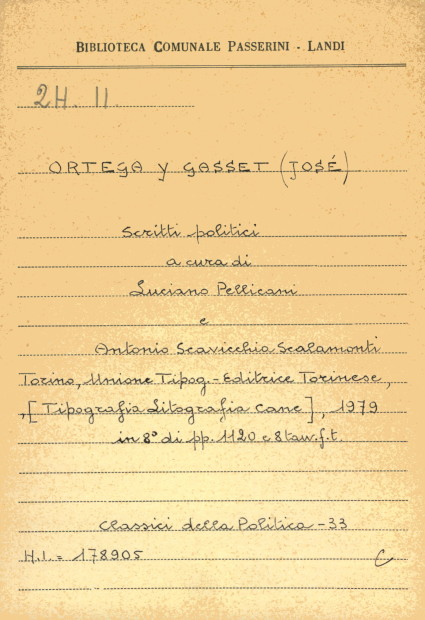 BIBLIOTECA COMUNALE PASSERINI - LANDI
2H. II.
ORTEGA Y GASSET (JOSÉ)
Scritti politici
a cura di
Luciano Pellicani
e
Antonio Scavicchio Scalamonti
Torino, Unione Tipog.-Editrice Torinese,
,[Tipografia Litografia Cane], 1979
in 8° di pp. 1120 e 8 tav. f.t.
Classici della Politica - 33
H.I. = 178905
C